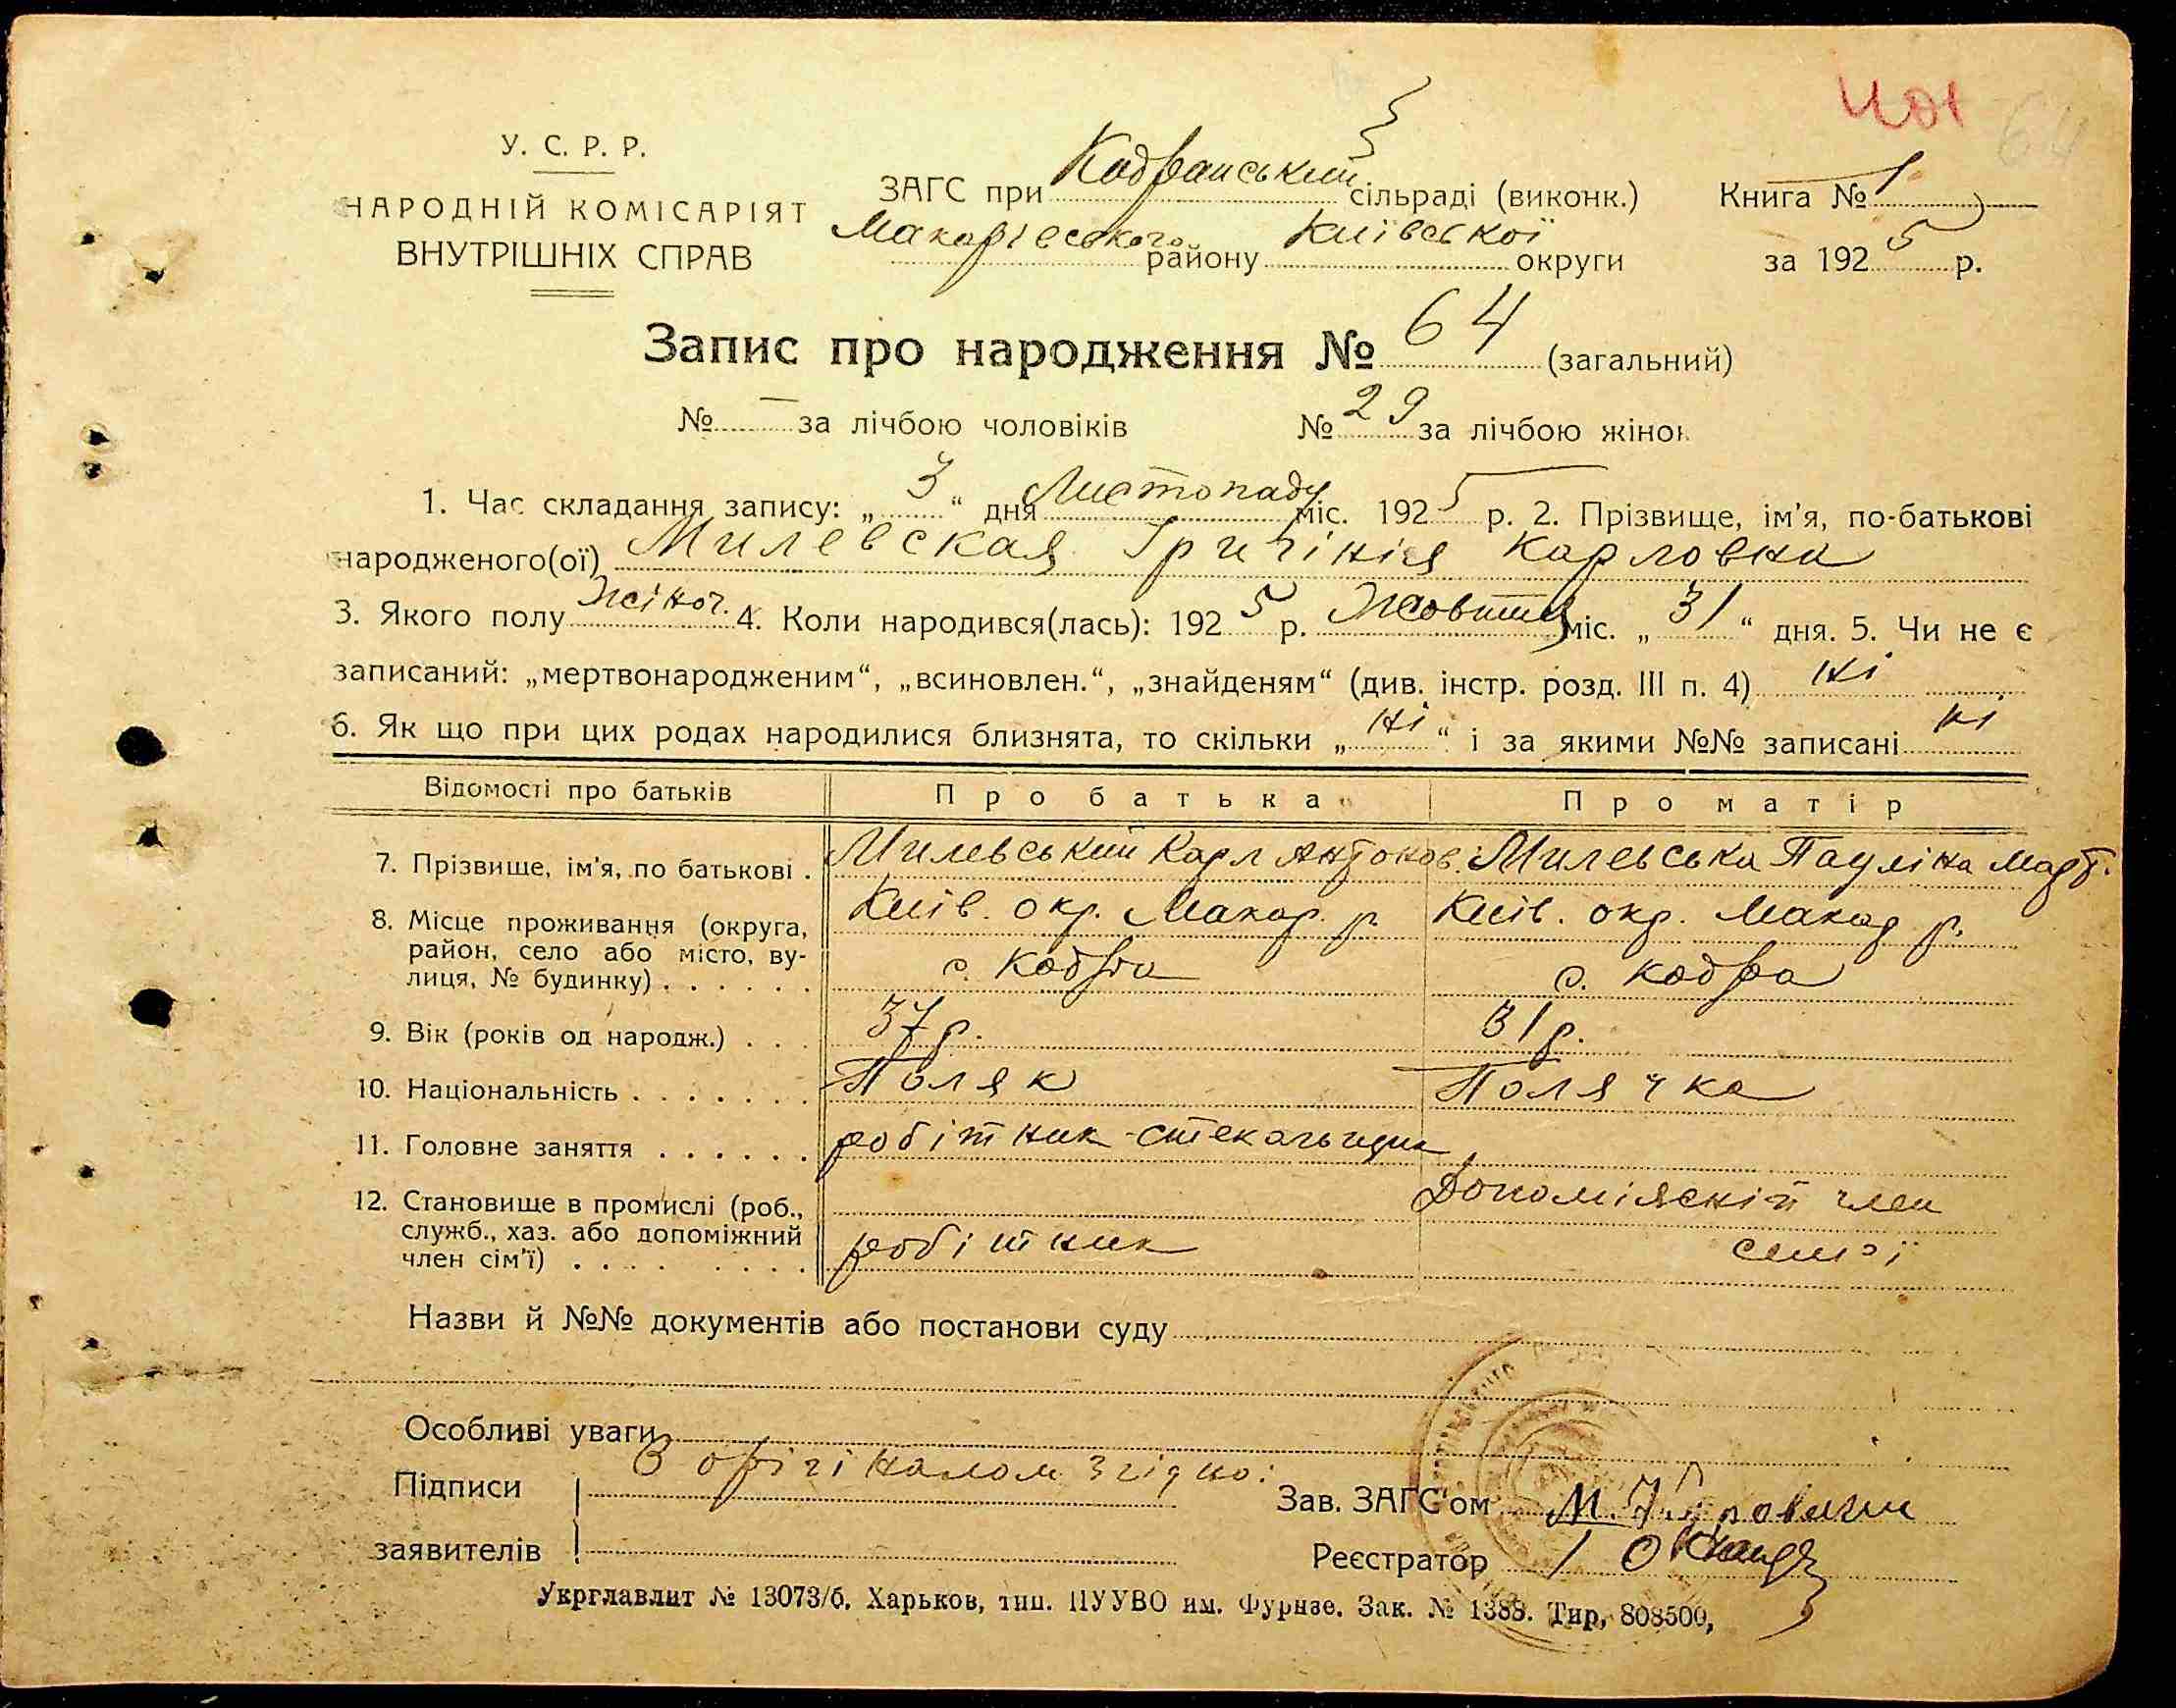 401 64
У. С. Р. Р.
НАРОДНІЙ КОМІСАРІЯТ
ВНУТРІШНІХ СПРАВ
ЗАГС при Кодранський сільраді (виконк.)
Макарівського району Київської округи
Книга № 1
за 1925 р.
Запис про народження № 64 (загальний)
№ — за лічбою чоловіків № 29 за лічбою жінок
1. Час складання запису: „3“ дня Листопаду міс. 1925 р. 2. Прізвище, ім'я, по-батькові
народженого(ої) Милевская Григінія Карловна
3. Якого полу жіноч. 4. Коли народився(лась): 1925 р. Жовтня міс. „31“ дня. 5. Чи не є
записаний: „мертвонародженим“, „всиновлен.“, „знайденям“ (див. інстр. розд. III п. 4) ні
6. Як що при цих родах народилися близнята, то скільки „ні“ і за якими №№ записані ні
Відомості про батьків Про батька Про матір
7. Прізвище, ім'я, по батькові . Милевський Карл Антонов. Милевська Пауліна Март.
8. Місце проживання (округа, район, село або місто, вулиця, № будинку) . . . . . .
Київ. окр. Макар. р. с. Кодра
Київ. окр. Макар р. с. Кодра
9. Вік (років од народж.) . . . 37 р. 31 р.
10. Національність . . . . . . . Поляк Полячка
11. Головне заняття . . . . . . робітник-стекальщик
12. Становище в промислі (роб., служб., хаз. або допоміжний член сім'ї) . . . .
робітник
Допоміжній член сем'ї
Назви й №№ документів або постанови суду
Особливі уваги
З орігіналом згідно:
Підписи
заявителів
Зав. ЗАГС'ом М.
Реєстратор
Укрглавлит № 13073/б. Харьков, тип. ПУУВО им. Фурнзе. Зак. № 1388. Тир, 808500,